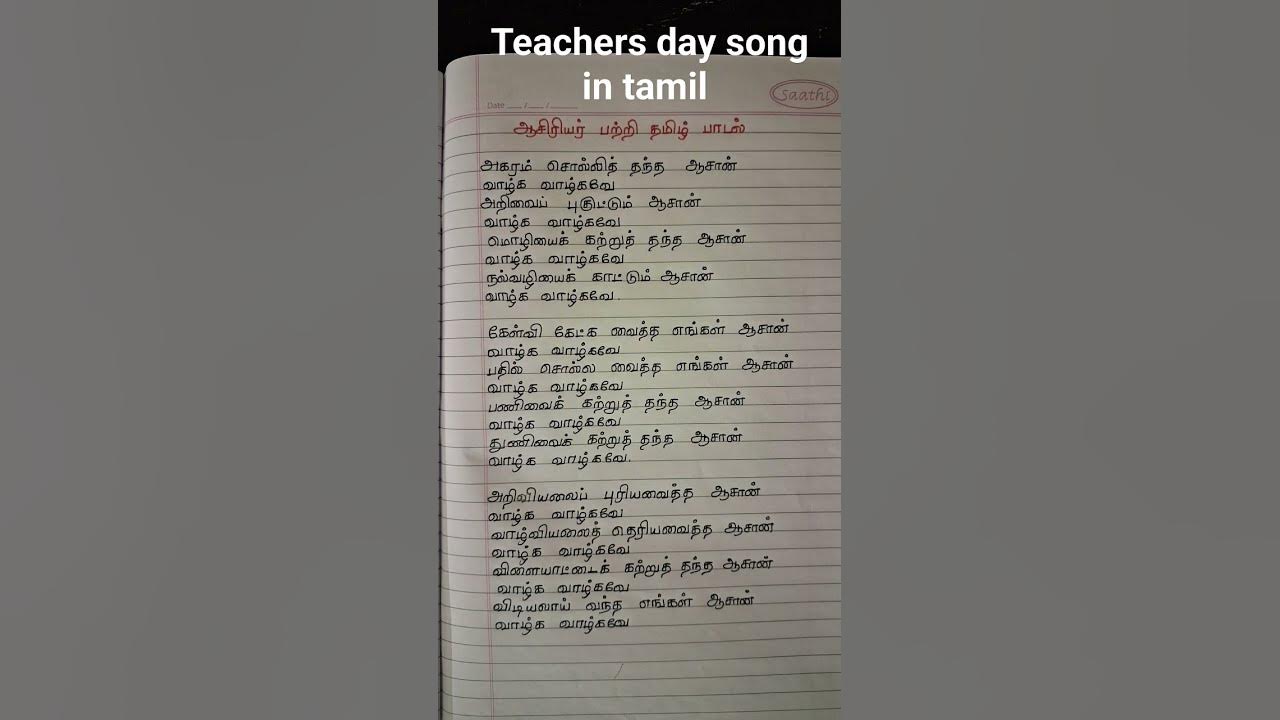 Teachers day song
in tamil
Saathi
Date __ / __ / ____
ஆசிரியர் பற்றி தமிழ் பாடல்
அகரம் சொல்லித் தந்த ஆசான்
வாழ்க வாழ்கவே
அறிவைப் புகுட்டும் ஆசான்
வாழ்க வாழ்கவே
மொழியைக் கற்றுத் தந்த ஆசான்
வாழ்க வாழ்கவே
நல்வழியைக் காட்டும் ஆசான்
வாழ்க வாழ்கவே.
கேள்வி கேட்க வைத்த எங்கள் ஆசான்
வாழ்க வாழ்கவே
பதில் சொல்ல வைத்த எங்கள் ஆசான்
வாழ்க வாழ்கவே
பணிவைக் கற்றுத் தந்த ஆசான்
வாழ்க வாழ்கவே
துணிவைக் கற்றுத் தந்த ஆசான்
வாழ்க வாழ்கவே.
அறிவியலைப் புரியவைத்த ஆசான்
வாழ்க வாழ்கவே
வாழ்வியலைத் தெரியவைத்த ஆசான்
வாழ்க வாழ்கவே
விளையாட்டைக் கற்றுத் தந்த ஆசான்
வாழ்க வாழ்கவே
விடியலாய் வந்த எங்கள் ஆசான்
வாழ்க வாழ்கவே